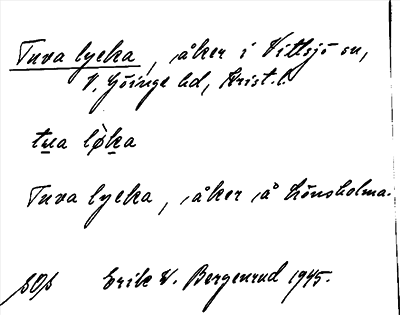 Tuva lycka, åker i Vittsjö sn,
V. Göinge hd, Krist. l.
tua lø̀ka
Tuva lycka, åker å Lönsholma.
Erik V. Bergenrud 1945.